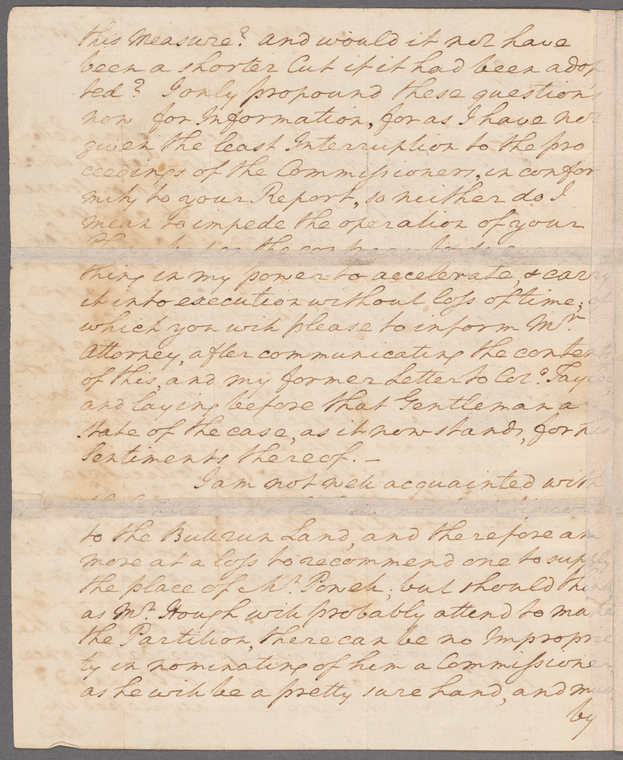 this Measure? and would it not have
been a shorter Cut if it had been adop
ted? I only propound these questions
now for Information, for as I have not
given the least Interruption to the pro
ceedings of the Commissioners, in confor
mity to your Report, so neither do I
mean to impede the operation of your
thing in my power to accelerate, & carry
it into execution without loss of time;
which you will please to inform Mr.
Attorney, after communicating the conten
of this, and my former Letter to Colo. Tay
and laying before that Gentleman a
state of the case, as it now stands, for his
Sentiments thereof.—
I am not well acquainted with
to the Bullrun Land, and therefore am
more at a loss to recommend one to supply
the place of Mr. Powell; but should th
as Mr. Hough will probably attend to make
the Partition, there can be no Impropri
ty in nominating of him a Commissioner
as he will be a pretty sure hand, and m
by